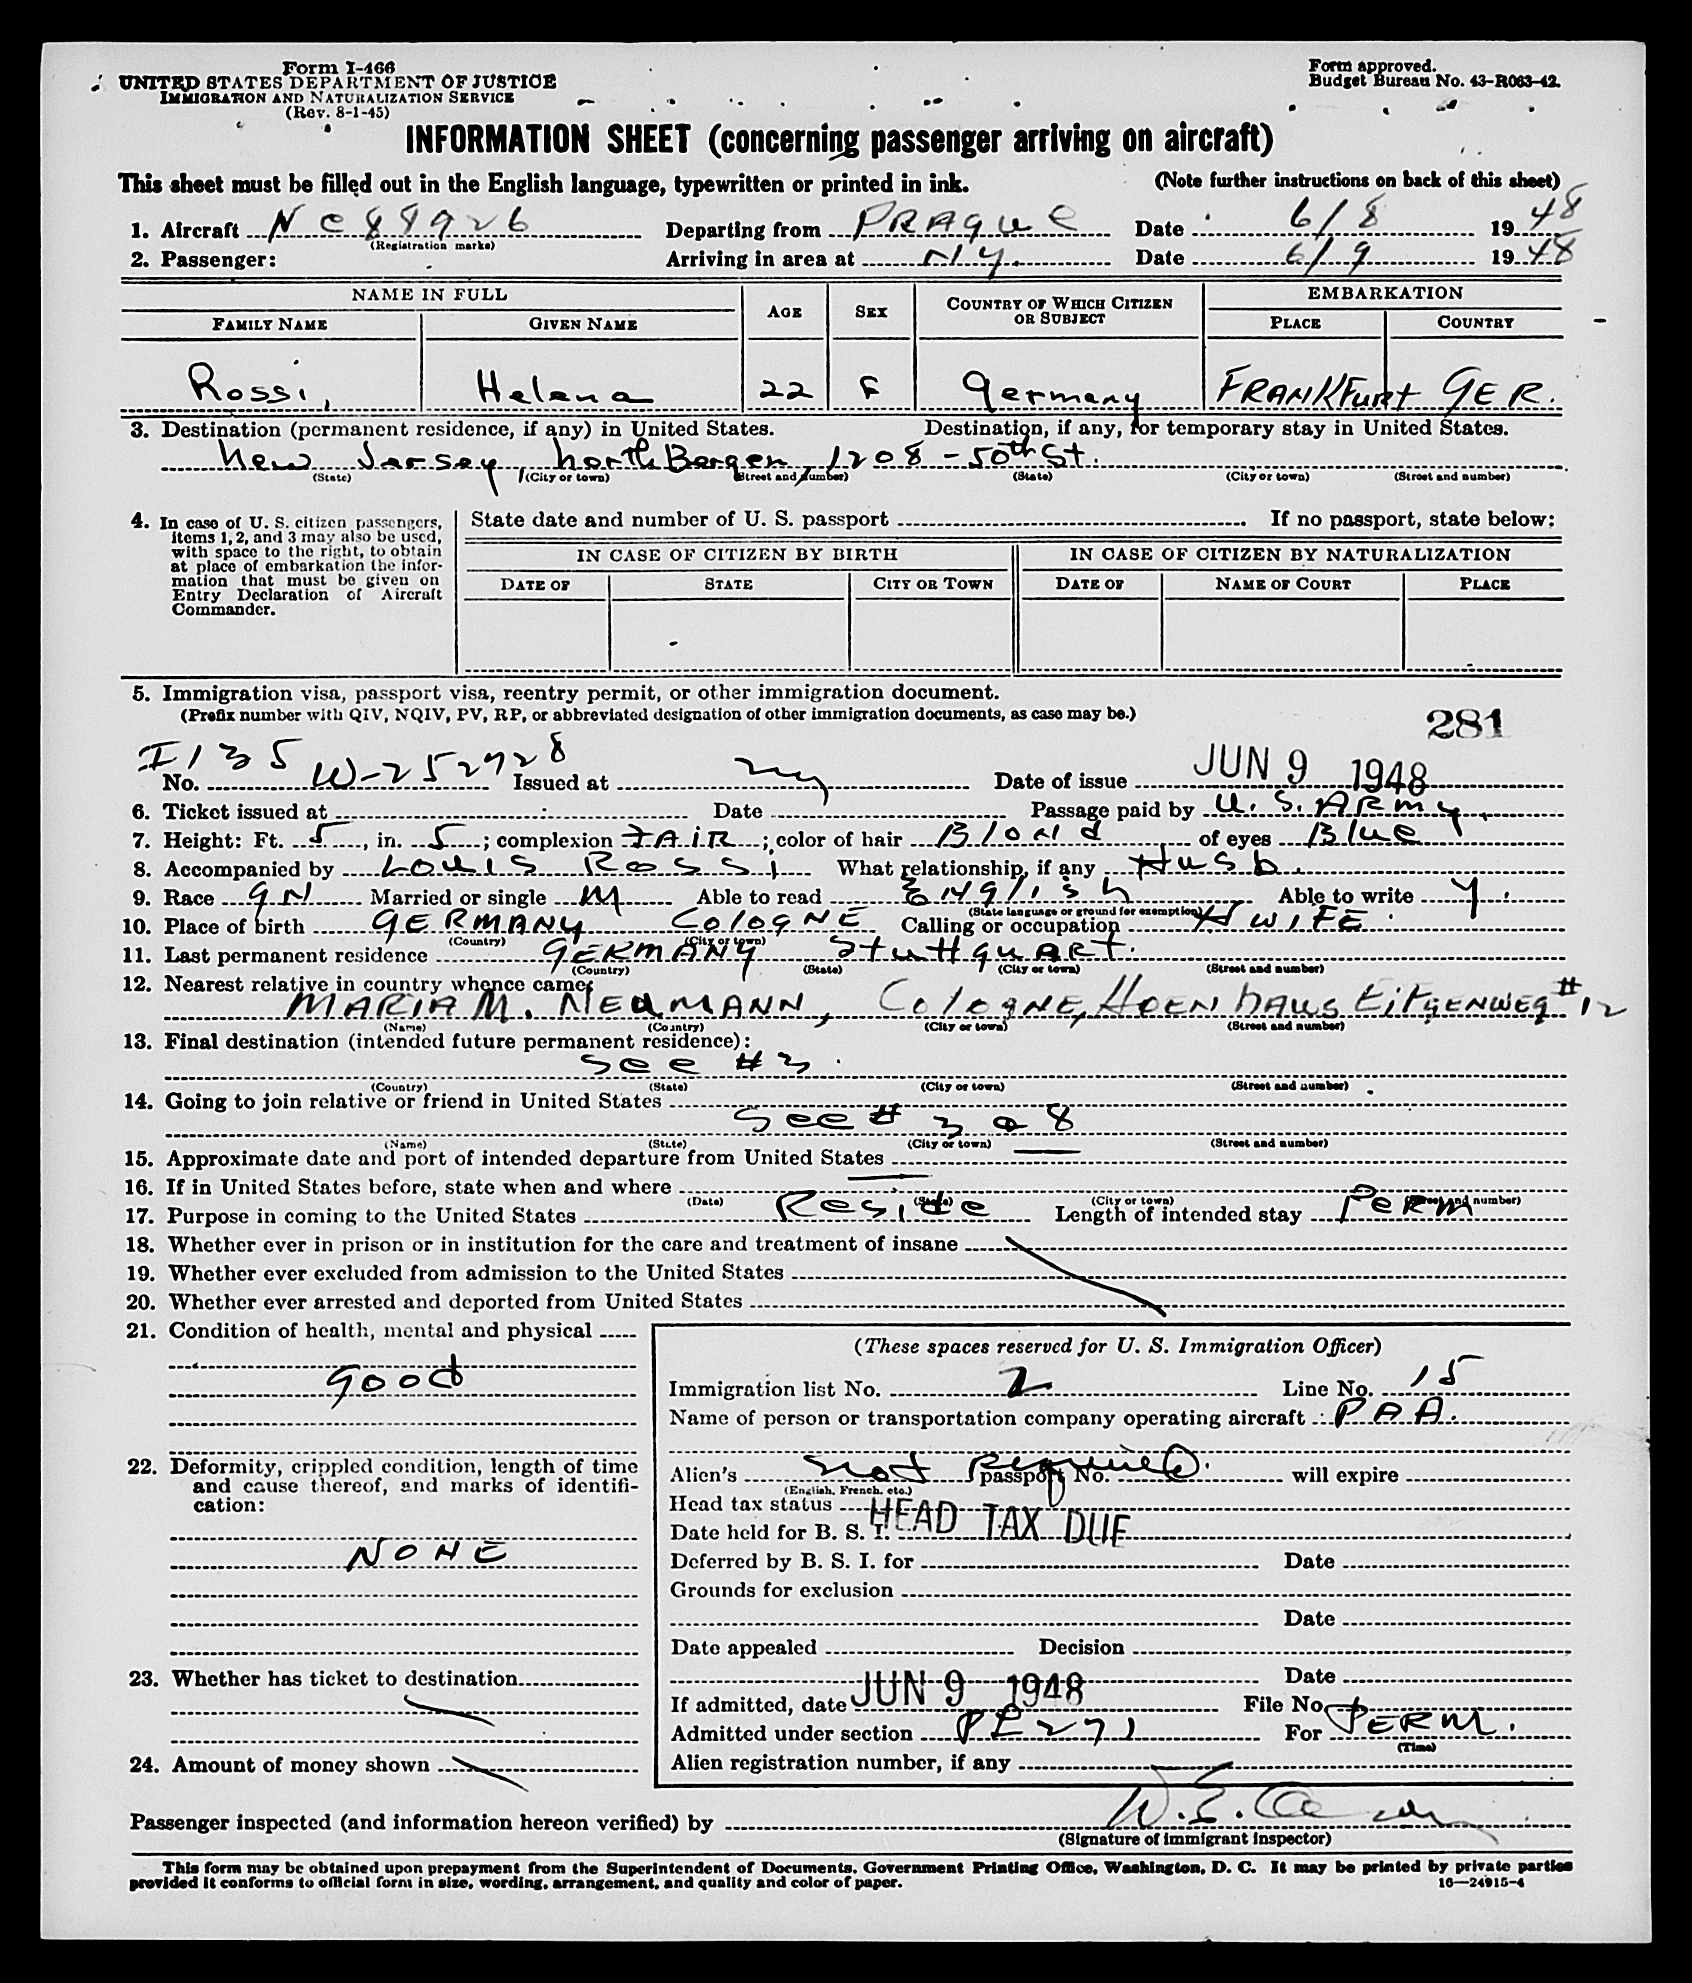 Form I-466
UNITED STATES DEPARTMENT OF JUSTICE
IMMIGRATION AND NATURALIZATION SERVICE
(Rev. 8-1-45)
Form approved.
Budget Bureau No. 43-R063-42.
INFORMATION SHEET (concerning passenger arriving on aircraft)
This sheet must be filled out in the English language, typewritten or printed in ink. (Note further instructions on back of this sheet)
1. Aircraft NC88926 Departing from PRAgue Date 6/8 1948
(Registration marks)
2. Passenger: Arriving in area at N.y. Date 6/9 1948
NAME IN FULL AGE SEX COUNTRY OF WHICH CITIZEN OR SUBJECT EMBARKATION
FAMILY NAME GIVEN NAME PLACE COUNTRY
Rossi, Helena 22 F Germany FRANKFurt GER.
3. Destination (permanent residence, if any) in United States. Destination, if any, for temporary stay in United States.
New Jersey, North Bergen, 1208-50th St.
(State) (City or town) (Street and number) (State) (City or town) (Street and number)
4. In case of U. S. citizen passengers,
items 1, 2, and 3 may also be used,
with space to the right, to obtain
at place of embarkation the infor-
mation that must be given on
Entry Declaration of Aircraft
Commander.
State date and number of U. S. passport . If no passport, state below:
IN CASE OF CITIZEN BY BIRTH IN CASE OF CITIZEN BY NATURALIZATION
DATE OF STATE CITY OR TOWN DATE OF NAME OF COURT PLACE
5. Immigration visa, passport visa, reentry permit, or other immigration document.
(Prefix number with QIV, NQIV, PV, RP, or abbreviated designation of other immigration documents, as case may be.)
281
I 135
No. W-252728 Issued at ny Date of issue JUN 9 1948
6. Ticket issued at Date Passage paid by U.S. ARmy
7. Height: Ft. 5, in. 5; complexion FAIR; color of hair Blond of eyes Blue
8. Accompanied by Louis Rossi What relationship, if any Husb.
9. Race GN Married or single M Able to read English Able to write y.
(State language or ground for exemption)
10. Place of birth GERMANy COlOgNE Calling or occupation H WIFE.
(Country) (City or town)
11. Last permanent residence GERMANY StuttguARt.
(Country) (State) (City or town) (Street and number)
12. Nearest relative in country whence came:
MARIA M. NEUMANN, COlOgNE, HOENHAUS EiFgENWEg #12
(Name) (Country) (City or town) (Street and number)
13. Final destination (intended future permanent residence):
See #3.
(Country) (State) (City or town) (Street and number)
14. Going to join relative or friend in United States
See # 3 a 8
(Name) (State) (City or town) (Street and number)
15. Approximate date and port of intended departure from United States —
16. If in United States before, state when and where —
(Date) (State) (City or town) (Street and number)
17. Purpose in coming to the United States Reside Length of intended stay PeRM
18. Whether ever in prison or in institution for the care and treatment of insane
19. Whether ever excluded from admission to the United States
20. Whether ever arrested and deported from United States
21. Condition of health, mental and physical
good
22. Deformity, crippled condition, length of time
and cause thereof, and marks of identifi-
cation:
NONE
23. Whether has ticket to destination
24. Amount of money shown
(These spaces reserved for U. S. Immigration Officer)
Immigration list No. 2 Line No. 15
Name of person or transportation company operating aircraft PAA.
Alien's not Required. passport No. will expire
(English, French, etc.)
Head tax status HEAD TAX DUE
Date held for B. S. I.
Deferred by B. S. I. for Date
Grounds for exclusion
Date
Date appealed Decision
Date
If admitted, date JUN 9 1948 File No.
Admitted under section PL 271 For PERM.
(Time)
Alien registration number, if any
Passenger inspected (and information hereon verified) by W. E.
(Signature of immigrant inspector)
This form may be obtained upon prepayment from the Superintendent of Documents, Government Printing Office, Washington, D. C. It may be printed by private parties
provided it conforms to official form in size, wording, arrangement, and quality and color of paper. 16—24915-4